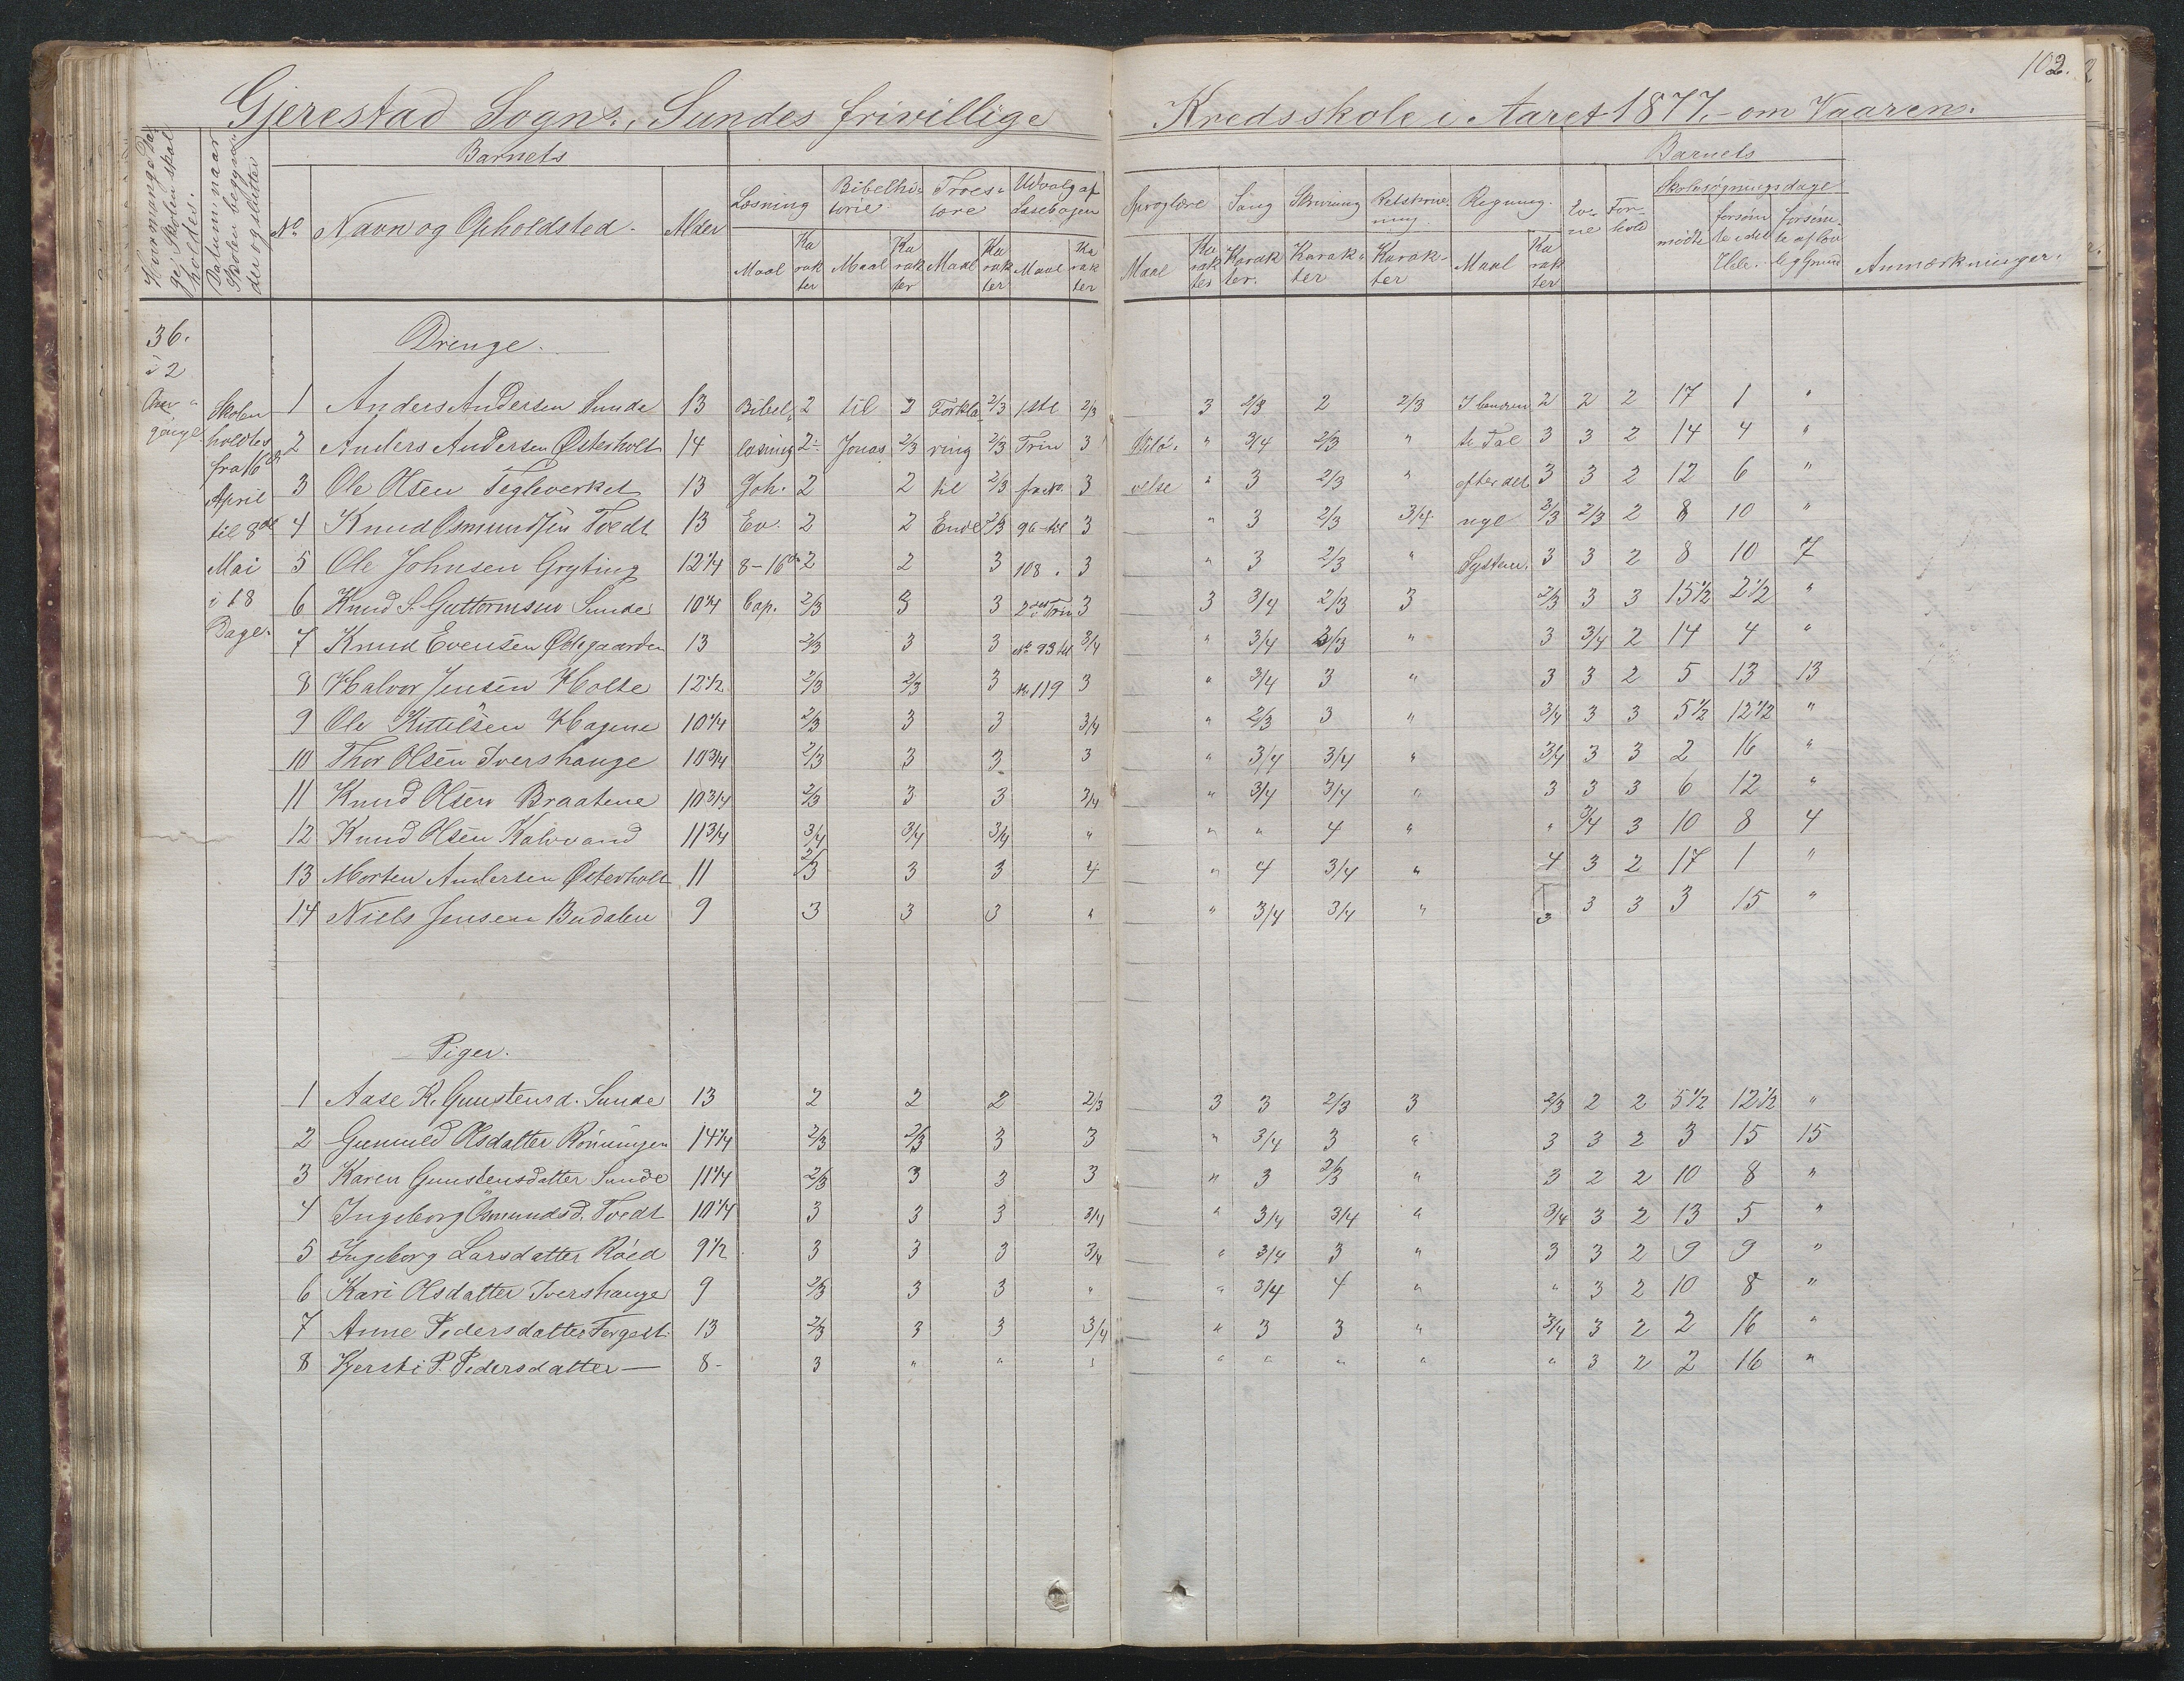 102.
Gjerestad Sogns, Sundes frivillige Kredsskole i Aaret 1877.- om Vaaren.
Hvormange Dage Skolen skal holdes.
Datum, naar Skolen begynder og slutter
Barnets
No Navn og Opholdsted. Alder
Læsning Maal Karakter
Bibelhistorie Maal Karakter
Troeslære Maal Karakter
Udvalg af Læsebogen Maal Karakter
Sproglære Maal Karakter
Sang Karakter.
Skrivning Karakter
Retskrivning Karakter
Regning. Maal Karakter
Evne Forhold
Barnets
Skolesøgningsdage
mødte forsømte i det Hele. forsømte af lovlig Grund
Anmærkninger.
36.
i 2
Omgange
Skolen holdtes fra 16de April til 8de Mai i 18 Dage.
Drenge.
1 Anders Andersen Sunde 13 Bibel 2 til 2 Forkla 2/3 1ste 2/3 3 2/3 2 2/3 2 2 2 17 1 "
2 Anders Andersen Østerholt 14 læsning 2- Jonas 2/3 ring 2/3 Trin 3 " 3/4 2/3 " te Tal 3 3 2 14 4 "
3 Ole Olsen Tegleverket 13 Joh. 2 2 til 2/3 3 velse " 3 2/3 " efter det 3 3 2 12 6 "
4 Knud Osmundsen Tvedt 13 Ev. 2 2 Ende 2/3 96-til 3 " 3 2/3 3/4 nye 2/3 2/3 2 8 10 "
5 Ole Johnsen Gryting 12 1/4 8-16de 2 2 3 108. 3 " 3 2/3 " System. 3 3 2 8 10 7
6 Knud S. Guttormsen Sunde 10 1/4 Cap. 2/3 3 3 2det Trin 3 3 3/4 2/3 3 2/3 3 3 15 1/2 2 1/2 "
7 Knud Evensen Ødegaarden 13 2/3 3 3 No 93 til 3/4 " 3/4 2/3 " 3 3/4 2 14 4 "
8 Halvor Jensen Holte 12 1/2 2/3 2/3 3 No 119 3 " 3/4 3 " 3 3 2 5 13 13
9 Ole Kittelsen Hagene 10 1/4 2/3 3 3 3/4 " 2/3 3 " 3/4 3 3 5 1/2 12 1/2 "
10 Thor Olsen Ivershauge 10 3/4 2/3 3 3 3 " 3/4 3/4 " 3/4 3 3 2 16 "
11 Knud Olsen Braatene 10 3/4 2/3 3 3 3/4 " 3/4 3/4 " 3 3 3 6 12 "
12 Knud Olsen Kalvvand 11 3/4 3/4 3/4 3/4 " " " 4 " " 3/4 3 10 8 4
13 Morten Andersen Østerholt 11 2/3 3 3 4 " 4 3/4 " 4 3 2 17 1 "
14 Niels Jensen Budalen 9 3 3 3 " " 3/4 3/4 " 3 3 3 3 15 "
Piger.
1 Aase K. Gunstensd. Sunde 13 2 2 2 2/3 3 3 2/3 3 2/3 2 2 5 1/2 12 1/2 "
2 Gunuld Olsdatter Rönningen 14 1/4 2/3 2/3 3 3 " 3/4 3 " 3 3 2 3 15 15
3 Karen Gunstensdatter Sunde 11 1/4 2/3 3 3 3 " 3 2/3 " 3 2 2 10 8 "
4 Ingeborg Osmundsd. Tvedt 10 1/4 3 3 3 3/4 " 3/4 3/4 " 3/4 3 2 13 5 "
5 Ingeborg Larsdatter Röed 9 1/2 3 3 3 3/4 " 3/4 3 " 3 3 2 9 9 "
6 Kari Olsdatter Ivershauge 9 2/3 3 3 " " 3/4 4 " " 3 2 10 8 "
7 Anne Pedersdatter 13 2/3 3 3 3/4 " 3 3 " 3/4 3 2 2 16 "
8 Kjersti P. Pedersdatter — 8- 3 " " " " " " " " 3 2 2 16 "